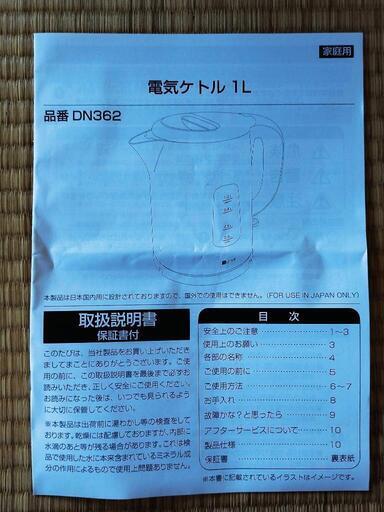 家庭用
電気ケトル 1L
品番 DN362
本製品は日本国内用に設計されておりますので、国外での使用はできません。(FOR USE IN JAPAN ONLY)
取扱説明書
保証書付
このたびは、当社製品をお買い上げいただき
ましてまことにありがとうございます。ご使
用の前に、この取扱説明書を最後まで必ずお
読みいただき、正しく安全にご使用ください。
お読みになった後は、いつでも見られるよう
に大切に保管してください。
※本製品は出荷前に湯わかし等の検査をして
おります。乾燥には配慮しておりますが、内部に
水滴のあと等が残る場合があります。これは検
品で使用した水に本来含まれているミネラル成
分の作用によるもので使用上問題ありません。
目 次
安全上のご注意 1~3
使用上のお願い 3
各部の名称 4
ご使用の前に 5
ご使用方法 6~7
お手入れ 8
故障かな?と思ったら 9
アフターサービスについて 10
製品仕様 10
保証書 裏表紙
※本書に記載されているイラストはイメージです。